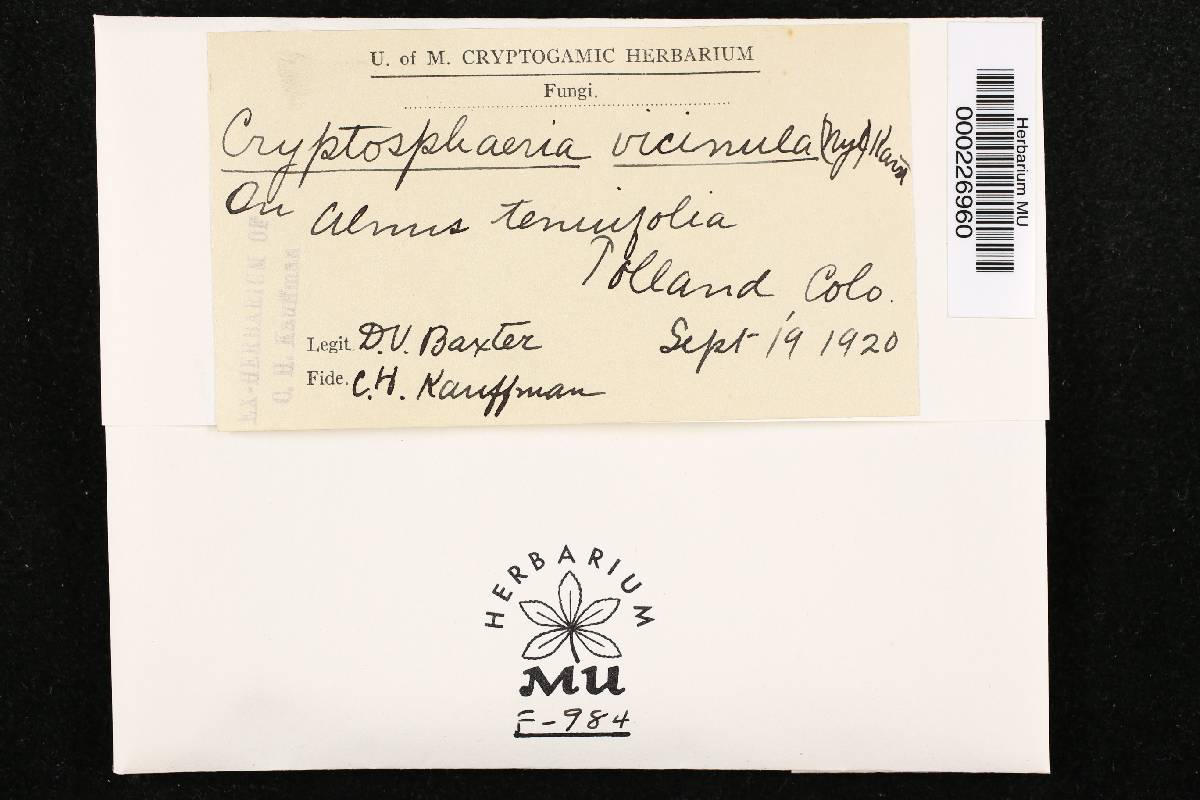 U. of M. CRYPTOGAMIC HERBARIUM
Fungi.
Cryptosphaeria vicinula (Nyl) Karst
On Alnus tenuifolia
Tolland Colo.
Legit D.V. Baxter
Sept 19 1920
Fide. C.H. Kauffman
EX-HERBARIUM OF
C. H. Kauffman
Herbarium MU
000226960
HERBARIUM
MU
F-984